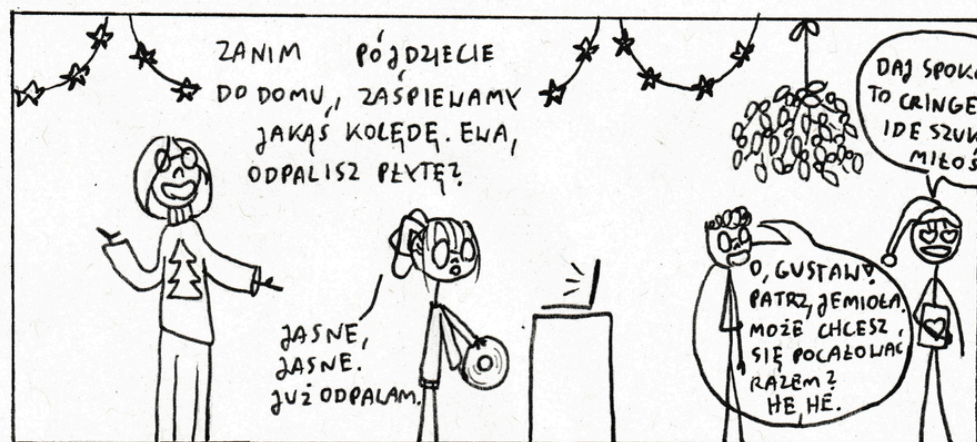 ZANIM PÓJDZIECIE
DO DOMU, ZAŚPIEWAMY
JAKĄŚ KOLĘDĘ. EWA,
ODPALISZ PŁYTĘ?
JASNE,
JASNE.
JUŻ ODPALAM.
O, GUSTAW!
PATRZ, JEMIOŁA.
MOŻE CHCESZ
SIĘ POCAŁOWAĆ
RAZEM?
HE HE.
DAJ
TO CRINGE
IDĘ